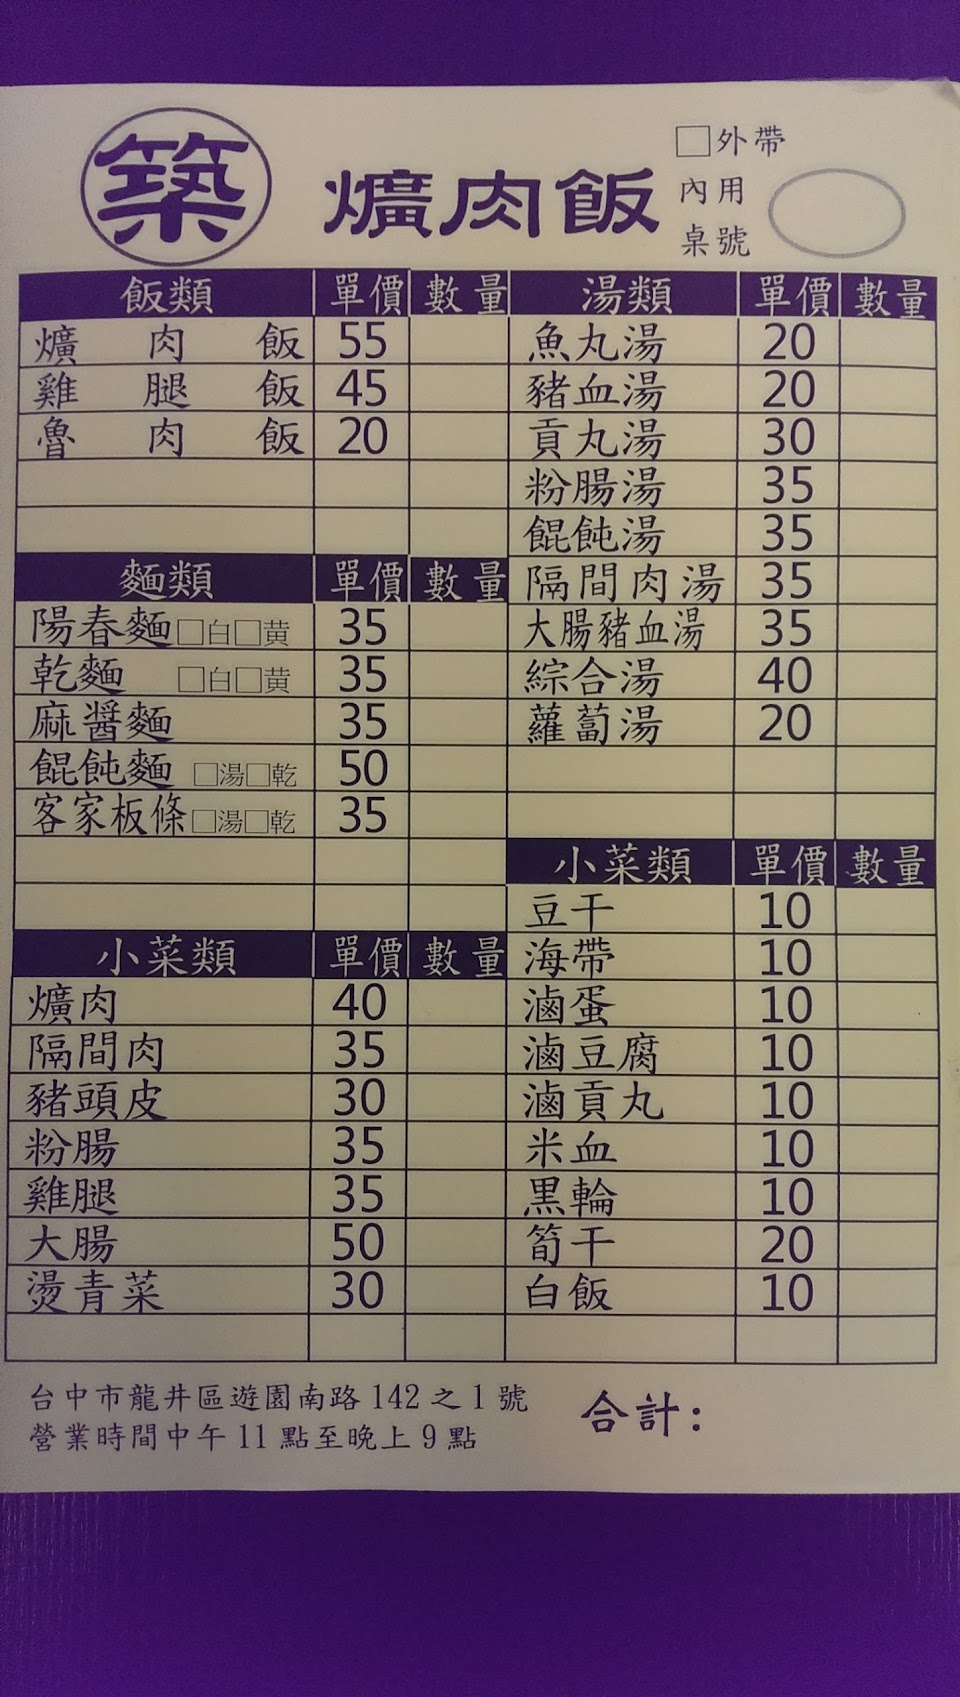 築 爌肉飯
□外帶
內用
桌號
飯類 單價 數量
爌肉飯 55
雞腿飯 45
魯肉飯 20
麵類 單價 數量
陽春麵□白□黃 35
乾麵 □白□黃 35
麻醬麵 35
餛飩麵 □湯□乾 50
客家板條□湯□乾 35
小菜類 單價 數量
爌肉 40
隔間肉 35
豬頭皮 30
粉腸 35
雞腿 35
大腸 50
燙青菜 30
湯類 單價 數量
魚丸湯 20
豬血湯 20
貢丸湯 30
粉腸湯 35
餛飩湯 35
隔間肉湯 35
大腸豬血湯 35
綜合湯 40
蘿蔔湯 20
小菜類 單價 數量
豆干 10
海帶 10
滷蛋 10
滷豆腐 10
滷貢丸 10
米血 10
黑輪 10
筍干 20
白飯 10
台中市龍井區遊園南路142之1號
營業時間中午11點至晚上9點
合計：